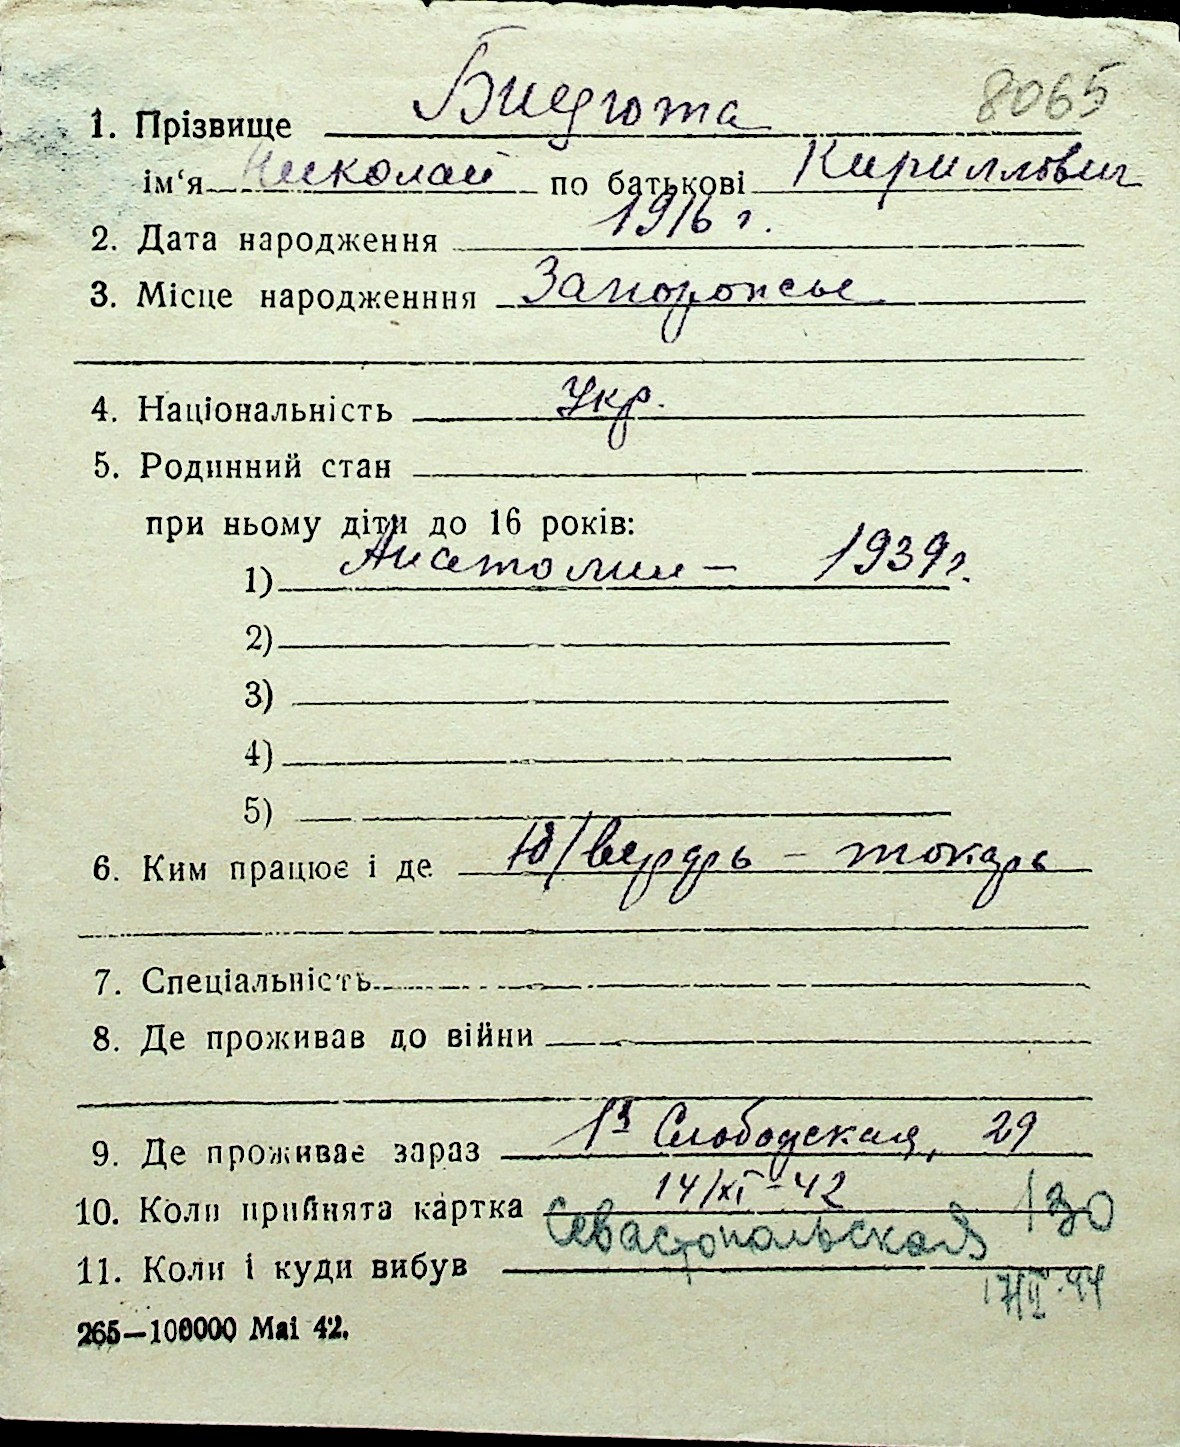 8065
1. Прізвище Бидгота
ім'я Николай по батькові Кириллович
2. Дата народження 1916 г.
3. Місце народженння Запорожье
4. Національність Укр.
5. Родинний стан
при ньому діти до 16 років:
1) Анатолий – 1939 г.
2)
3)
4)
5)
6. Ким працює і де – токарь
7. Спеціальність
8. Де проживав до війни
9. Де проживає зараз 1я Слободская, 29
10. Коли прийнята картка 14/XI-42
Севастопольская 130
11. Коли і куди вибув
17/II-44
265—100000 Mai 42.